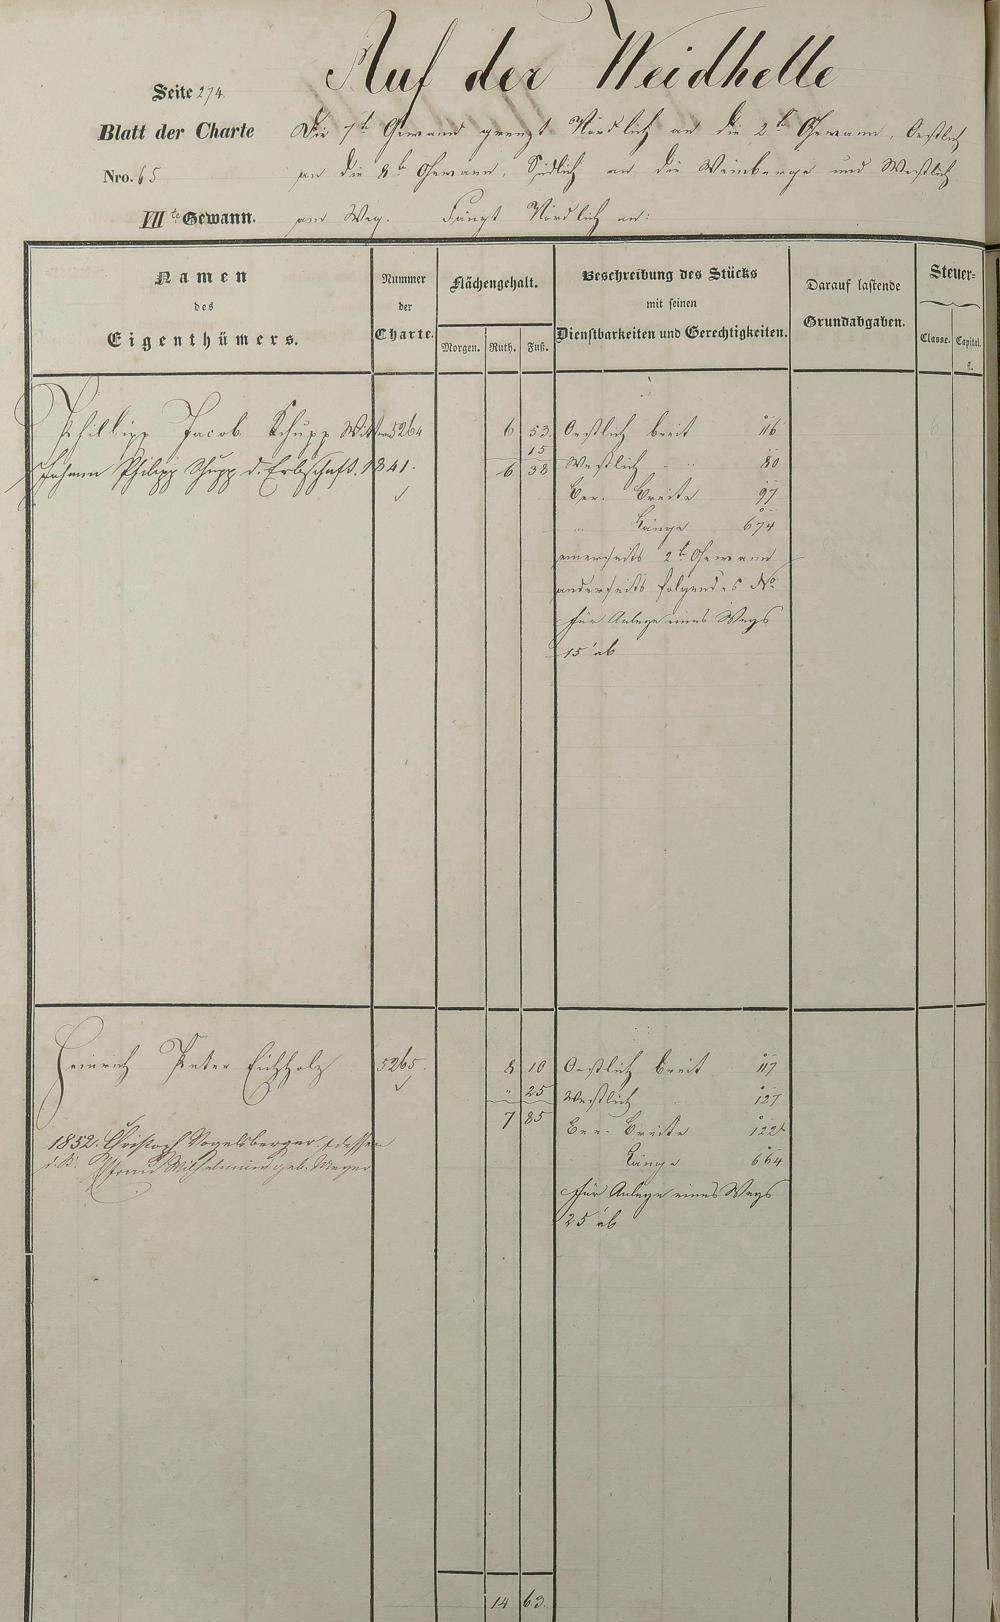 Auf der Weidhelle
Seite 274.
Blatt der Charte
Nro. 65
VII te Gewann.
Die 7te Gewann grenzt Nördlich an die 2te Gewann, Oestlich
an die 8te Gewann, Südlich an die Weinberge und Westlich
am Weg. Fängt Nördlich an:
Namen
des
Eigenthümers.
Nummer
der
Charte.
Flächengehalt.
Morgen. Ruth. Fuß.
Beschreibung des Stücks
mit seinen
Dienstbarkeiten und Gerechtigkeiten.
Darauf lastende
Grundabgaben.
Steuer=
Classe. Capital.
fl.
Phillipp Jacob Schupp Wittwe 5264 6 53. Oestlich breit 116
15
Johann Philipp Schupp d. Erbschaft. 1841. 6 38 Westlich " " 80
Ber. Breite 97
" Länge 674
einerseits 2te Gewann
anderseits folgendes No
für Anlage eines Wegs
15' ab
Heinrich Peter Eichholz 5265. 8 10 Oestlich breit 117
" 25 Westlich 127
7 85 Ber. Breite 122
1852. Christoph Vogelsberger u. dessen
Länge 664
Frau Wilhelmine geb. Meyer
für Anlage eines Wegs
25' ab
14 63.